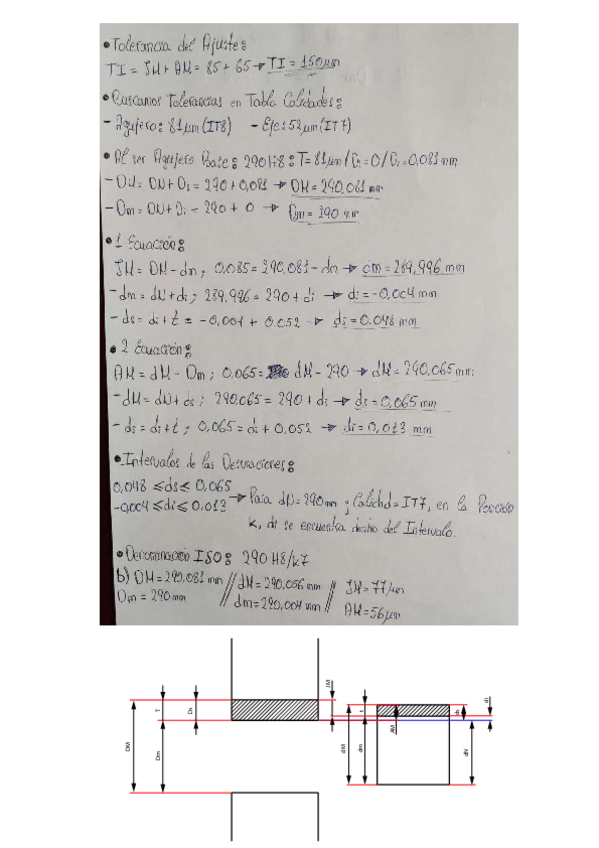 • Tolerancia del Ajuste:
TI = JM + AM = 85 + 65 → TI = 150 μm
• Buscamos Tolerancias en Tabla Calidades:
- Agujero: 81 μm (IT8) - Eje: 52 μm (IT7)
• Al ser Agujero Base: 290H8: T = 81 μm / Di = 0 / Ds = 0,081 mm
- DM = DN + Ds = 290 + 0,081 → DM = 290,081 mm
- Dm = DN + Di = 290 + 0 → Dm = 290 mm
• 1 Ecuación:
JM = DM - dm ; 0,085 = 290,081 - dm → dm = 289,996 mm
- dm = dN + di ; 289,996 = 290 + di → di = -0,004 mm
- ds = di + t = -0,004 + 0,052 → ds = 0,048 mm
• 2 Ecuación:
AM = dM - Dm ; 0,065 = dM - 290 → dM = 290,065 mm
- dM = dN + ds ; 290,065 = 290 + ds → ds = 0,065 mm
- ds = di + t ; 0,065 = di + 0,052 → di = 0,013 mm
• Intervalos de las Desviaciones:
0,048 ≤ ds ≤ 0,065
-0,004 ≤ di ≤ 0,013 → Para dN = 290 mm y Calidad = IT7, en la Posición
k, di se encuentra dentro del Intervalo.
• Denominación ISO: 290 H8/k7
b) DM = 290,081 mm // dM = 290,056 mm // JM = 77 μm
Dm = 290 mm // dm = 290,004 mm // AM = 56 μm
DM
T
Dm
Ds
JM
dM
t
dm
AM
ds
dN
di